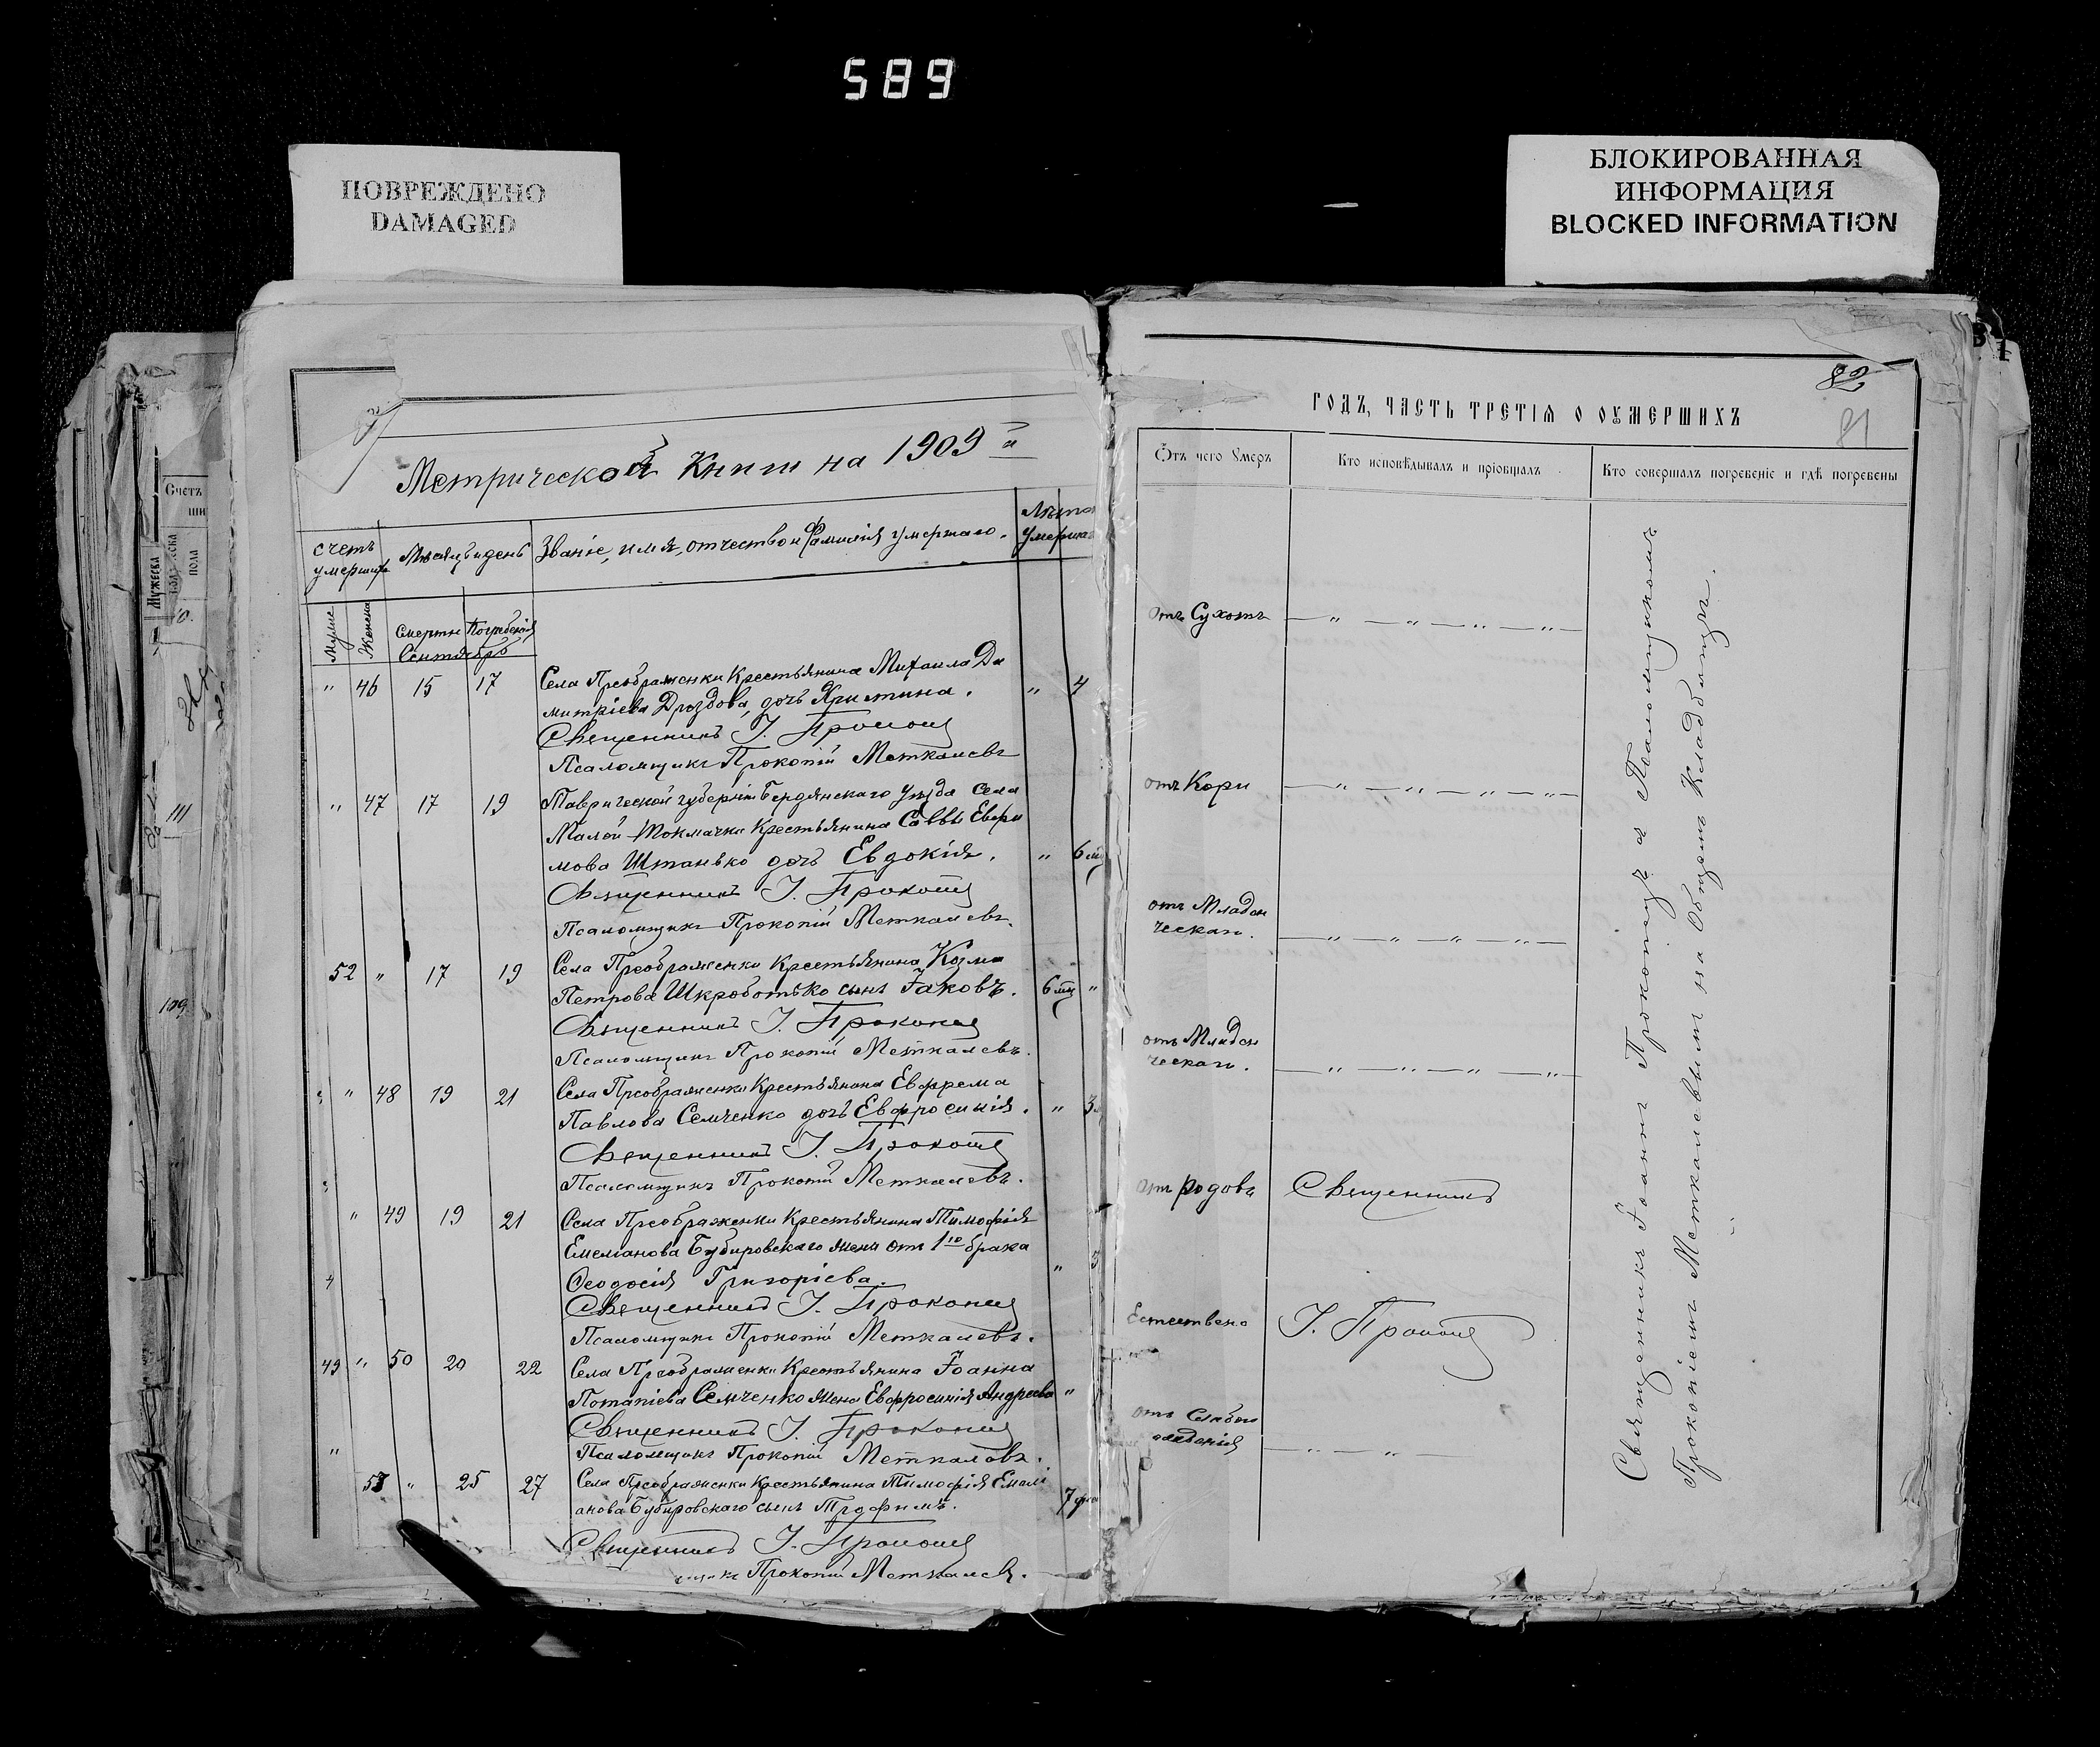 589
ПОВРЕЖДЕНО
DAMAGED
БЛОКИРОВАННАЯ
ИНФОРМАЦИЯ
BLOCKED INFORMATION
Счетъ
Мужеска
пола
Метрической Книги на 1909 й
счетъ умершихъ
Мѣсяцъ и день
Званіе, имя, отчество и Фамилія умершаго.
Смерти Погребенія
Сентябрь
" 46 15 17 Села Преображенки Крестьянина Михаила Ди
митріева Дроздова, дочь Христина. " 4
Священникъ І. Прокопец
Псаломщикъ Прокопій Меткалевъ
" 47 17 19 Таврической губерніи Бердянскаго уѣзда села
Малой Токмачки Крестьянина Саввы Евфи
мова Штанько дочь Евдокія. " 6
Священникъ І. Прокопец
Псаломщикъ Прокопій Меткалевъ.
52 " 17 19 Села Преображенки Крестьянина Козма
Петрова Шкроботько сынъ Іаковъ. 6 "
Священникъ І. Прокопец
Псаломщикъ Прокопій Меткалевъ.
" 48 19 21 Села Преображенки Крестьянина Евфрема
Павлова Семченко дочь Евфросинія. " 3
Священникъ І. Прокопец
Псаломщикъ Прокопій Меткалевъ.
" 49 19 21 Села Преображенки Крестьянина Тимофія
Емеліанова Бубировскаго жена от 1го брака
Феодосія Григоріева. " 3
Священникъ І. Прокопец
Псаломщикъ Прокопій Меткалевъ.
" 50 20 22 Села Преображенки Крестьянина Іоанна
Потапіева Семченко жена Евфросинія Андреева "
Священникъ І. Прокопец
Псаломщикъ Прокопій Меткалевъ.
53 " 25 27 Села Преображенки Крестьянина Тимофія Емелі
анова Бубировскаго сынъ Трофимъ. 7
Священникъ І. Прокопец
Прокопій Меткалевъ.
82
81
ГОДЪ, ЧАСТЬ ТРЕТІЯ О ОУМЕРШИХЪ
Ѿтъ чего Умеръ
Кто исповѣдывалъ и пріобщалъ
Кто совершалъ погребеніе и гдѣ погребены
отъ Сухотъ
отъ Кори
отъ Младен
ческаго.
отъ Младен
ческаго.
отъ родовъ Священникъ
Естествено І. Прокопец
отъ Слабого
Священникъ Іоаннъ Прокопецъ с Псаломщикомъ
Прокопіемъ Меткалевымъ на Общемъ Кладбищѣ.